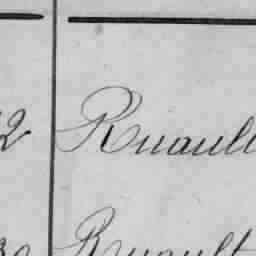 2 Ruault
30 Ruault